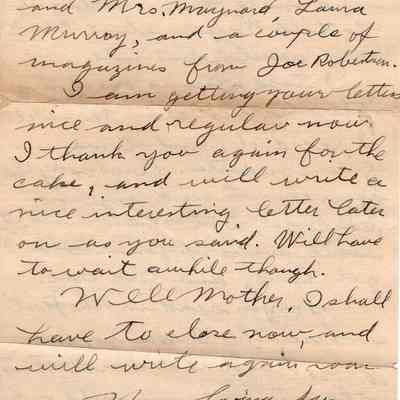 and Mrs. Maynard, Laura
Murray, and a couple of
magazines from Joe Robertson.
I am getting your letters
nice and regular now.
I thank you again for the
cake, and will write a
nice interesting letter later
on as you said. Will have
to wait awhile though.
Well Mother, I shall
have to close now, and
will write again soon
Your loving Son